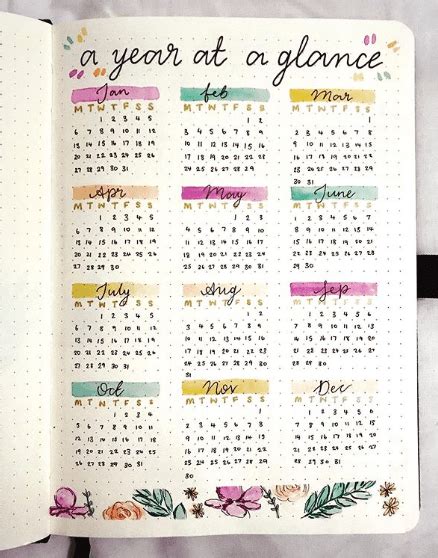 a year at a glance
Jan
M T W T F S S
1 2 3 4 5
6 7 8 9 10 11 12
13 14 15 16 17 18 19
20 21 22 23 24 25 26
27 28 29 30 31
feb
M T W T F S S
1 2
3 4 5 6 7 8 9
10 11 12 13 14 15 16
17 18 19 20 21 22 23
24 25 26 27 28 29
Mar
M T W T F S S
1
2 3 4 5 6 7 8
9 10 11 12 13 14 15
16 17 18 19 20 21 22
23 24 25 26 27 28 29
30 31
Apr
M T W T F S S
1 2 3 4 5
6 7 8 9 10 11 12
13 14 15 16 17 18 19
20 21 22 23 24 25 26
27 28 29 30
May
M T W T F S S
1 2 3
4 5 6 7 8 9 10
11 12 13 14 15 16 17
18 19 20 21 22 23 24
25 26 27 28 29 30 31
June
M T W T F S S
1 2 3 4 5 6 7
8 9 10 11 12 13 14
15 16 17 18 19 20 21
22 23 24 25 26 27 28
29 30
July
M T W T F S S
1 2 3 4 5
6 7 8 9 10 11 12
13 14 15 16 17 18 19
20 21 22 23 24 25 26
27 28 29 30 31
Aug
M T W T F S S
1 2
3 4 5 6 7 8 9
10 11 12 13 14 15 16
17 18 19 20 21 22 23
24 25 26 27 28 29 30
31
Sep
M T W T F S S
1 2 3 4 5 6
7 8 9 10 11 12 13
14 15 16 17 18 19 20
21 22 23 24 25 26 27
28 29 30
Oct
M T W T F S S
1 2 3 4
5 6 7 8 9 10 11
12 13 14 15 16 17 18
19 20 21 22 23 24 25
26 27 28 29 30 31
Nov
M T W T F S S
1
2 3 4 5 6 7 8
9 10 11 12 13 14 15
16 17 18 19 20 21 22
23 24 25 26 27 28 29
30
Dec
M T W T F S S
1 2 3 4 5 6
7 8 9 10 11 12 13
14 15 16 17 18 19 20
21 22 23 24 25 26 27
28 29 30 31